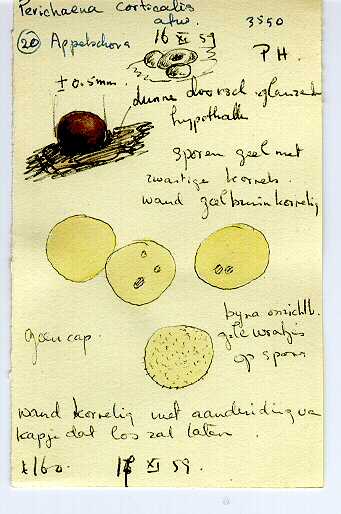 Perichaena corticalis
afw. 3550
(20) Appelscha 16 XI 59
P H.
± 0.5mm. dunne doorsch. glanzende
hypothallus
sporen geel met
zwartige korrels.
wand geelbruin korrelig
bijna onzichtb.
geen cap. gele wratjes
op sporen
wand korrelig met aanduiding van
kapje dat los zal laten.
± 160. 16 XI 59.